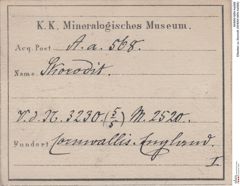 K. K. Mineralogisches Museum.
Acq. Post A. a. 568.
Name Skorodit.
V. d. N. 3230. (5/5) M. 2520.
Fundort Cornwallis. England.
I.